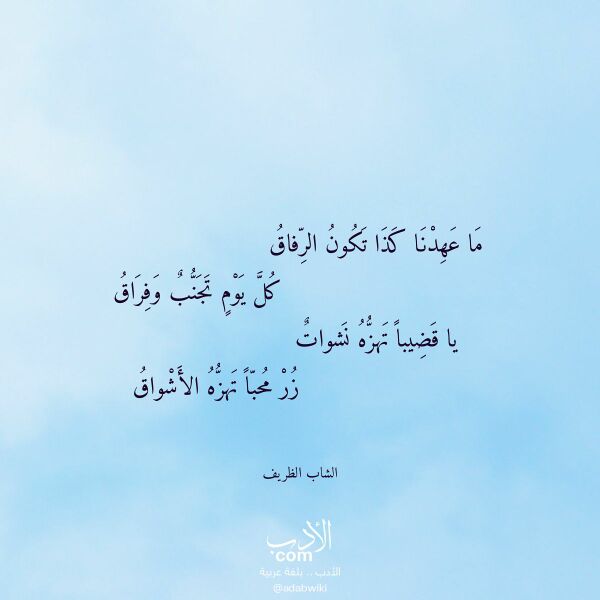 مَا عَهِدْنَا كَذَا تَكُونُ الرِّفاقُ
كُلَّ يَوْمٍ تَجَنُّبٌ وَفِرَاقُ
يا قَضِيباً تَهزُّهُ نَشواتٌ
زُرْ مُحبّاً تَهزُّهُ الأَشْواقُ
الشاب الظريف
الأدب
com
الأدب .. بلغة عربية
@adabwiki